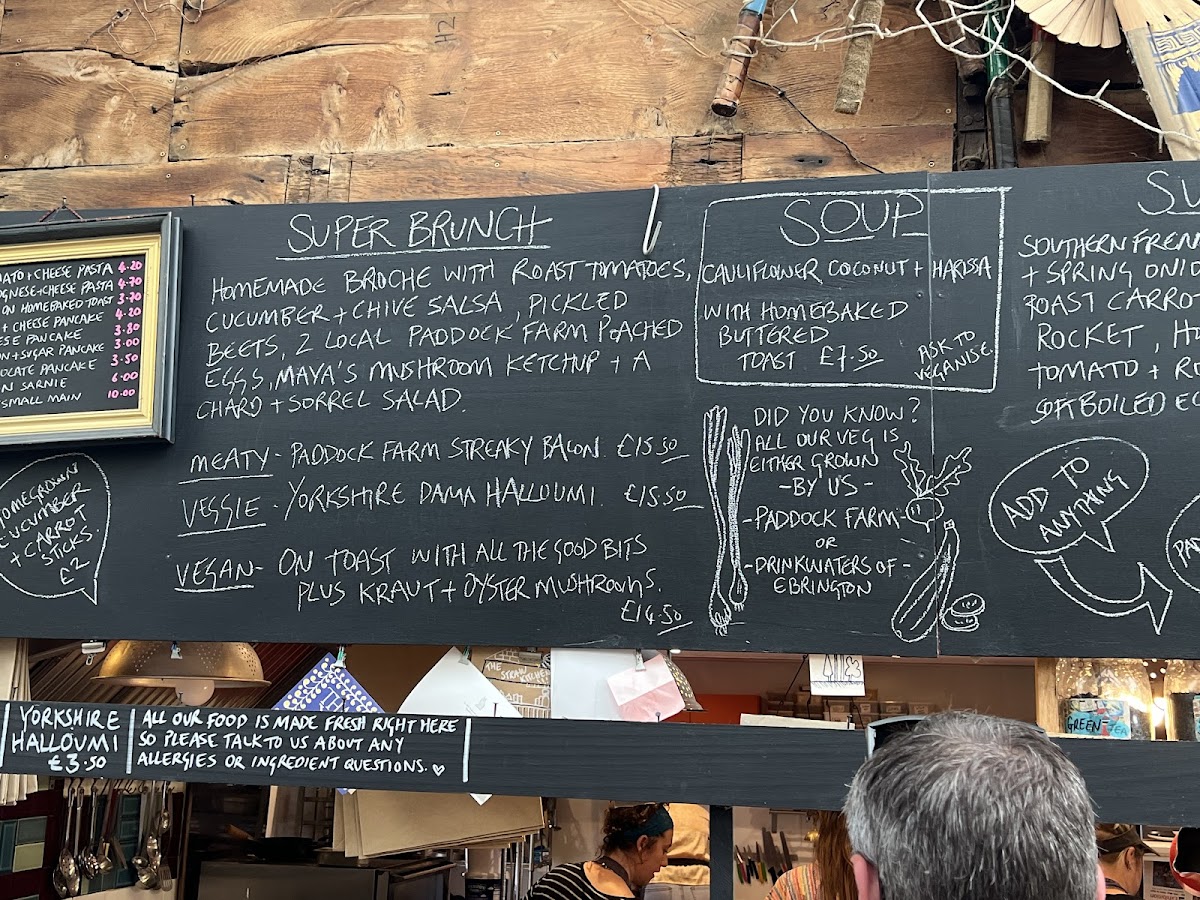 CHEESE PASTA 4.20
CHEESE PASTA 4.70
ON HOMEBAKED TOAST 3.70
+ CHEESE PANCAKE 4.20
PANCAKE 3.80
SUGAR PANCAKE 3.00
PANCAKE 3.50
SARNIE 6.00
SMALL MAIN 10.00
HOMEGROWN
CUCUMBER
+ CARROT
STICKS.
£2
SUPER BRUNCH
HOMEMADE BRIOCHE WITH ROAST TOMATOES,
CUCUMBER + CHIVE SALSA, PICKLED
BEETS, 2 LOCAL PADDOCK FARM POACHED
EGGS, MAYA'S MUSHROOM KETCHUP + A
CHARD + SORREL SALAD.
MEATY - PADDOCK FARM STREAKY BACON. £15.50
VEGGIE - YORKSHIRE DAMA HALLOUMI. £15.50
VEGAN - ON TOAST WITH ALL THE GOOD BITS
PLUS KRAUT + OYSTER MUSHROOMS.
£14.50
SOUP
CAULIFLOWER COCONUT + HARISSA
WITH HOMEBAKED
BUTTERED
TOAST £7.50
ASK TO
VEGANISE.
DID YOU KNOW?
ALL OUR VEG IS
EITHER GROWN
- BY US -
- PADDOCK FARM -
OR
- DRINKWATERS OF -
EBRINGTON
SU
SOUTHERN FREN
+ SPRING ONIO
ROAST CARRO
ROCKET, H
TOMATO + RO
SOFT BOILED EG
ADD TO
ANYTHING
PAD
YORKSHIRE
HALLOUMI
£3.50
ALL OUR FOOD IS MADE FRESH RIGHT HERE
SO PLEASE TALK TO US ABOUT ANY
ALLERGIES OR INGREDIENT QUESTIONS. ♡
THE STRAW KITCHEN
GREEN TEA